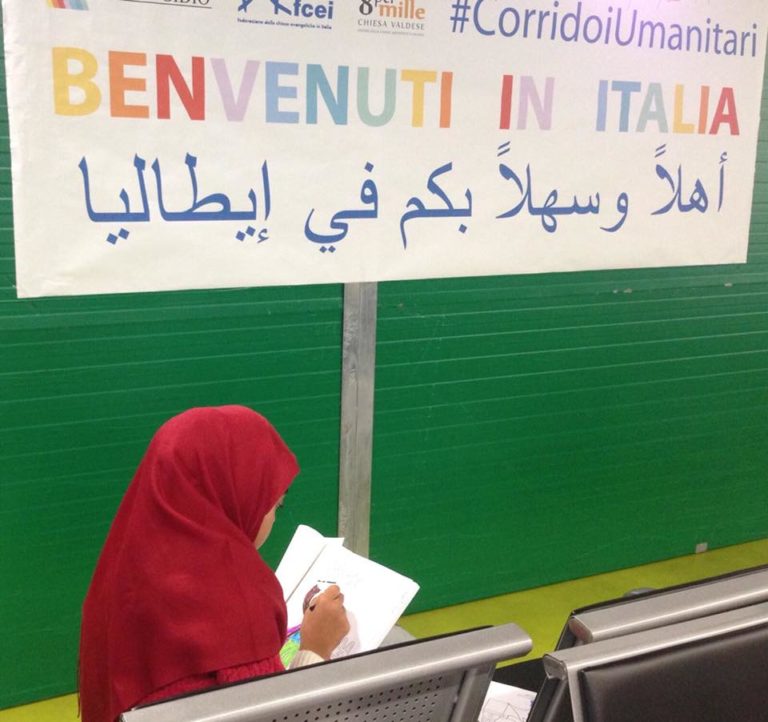 fcei
federazione delle chiese evangeliche in italia
8 per mille
CHIESA VALDESE
#CorridoiUmanitari
BENVENUTI IN ITALIA
أهلاً وسهلاً بكم في إيطاليا